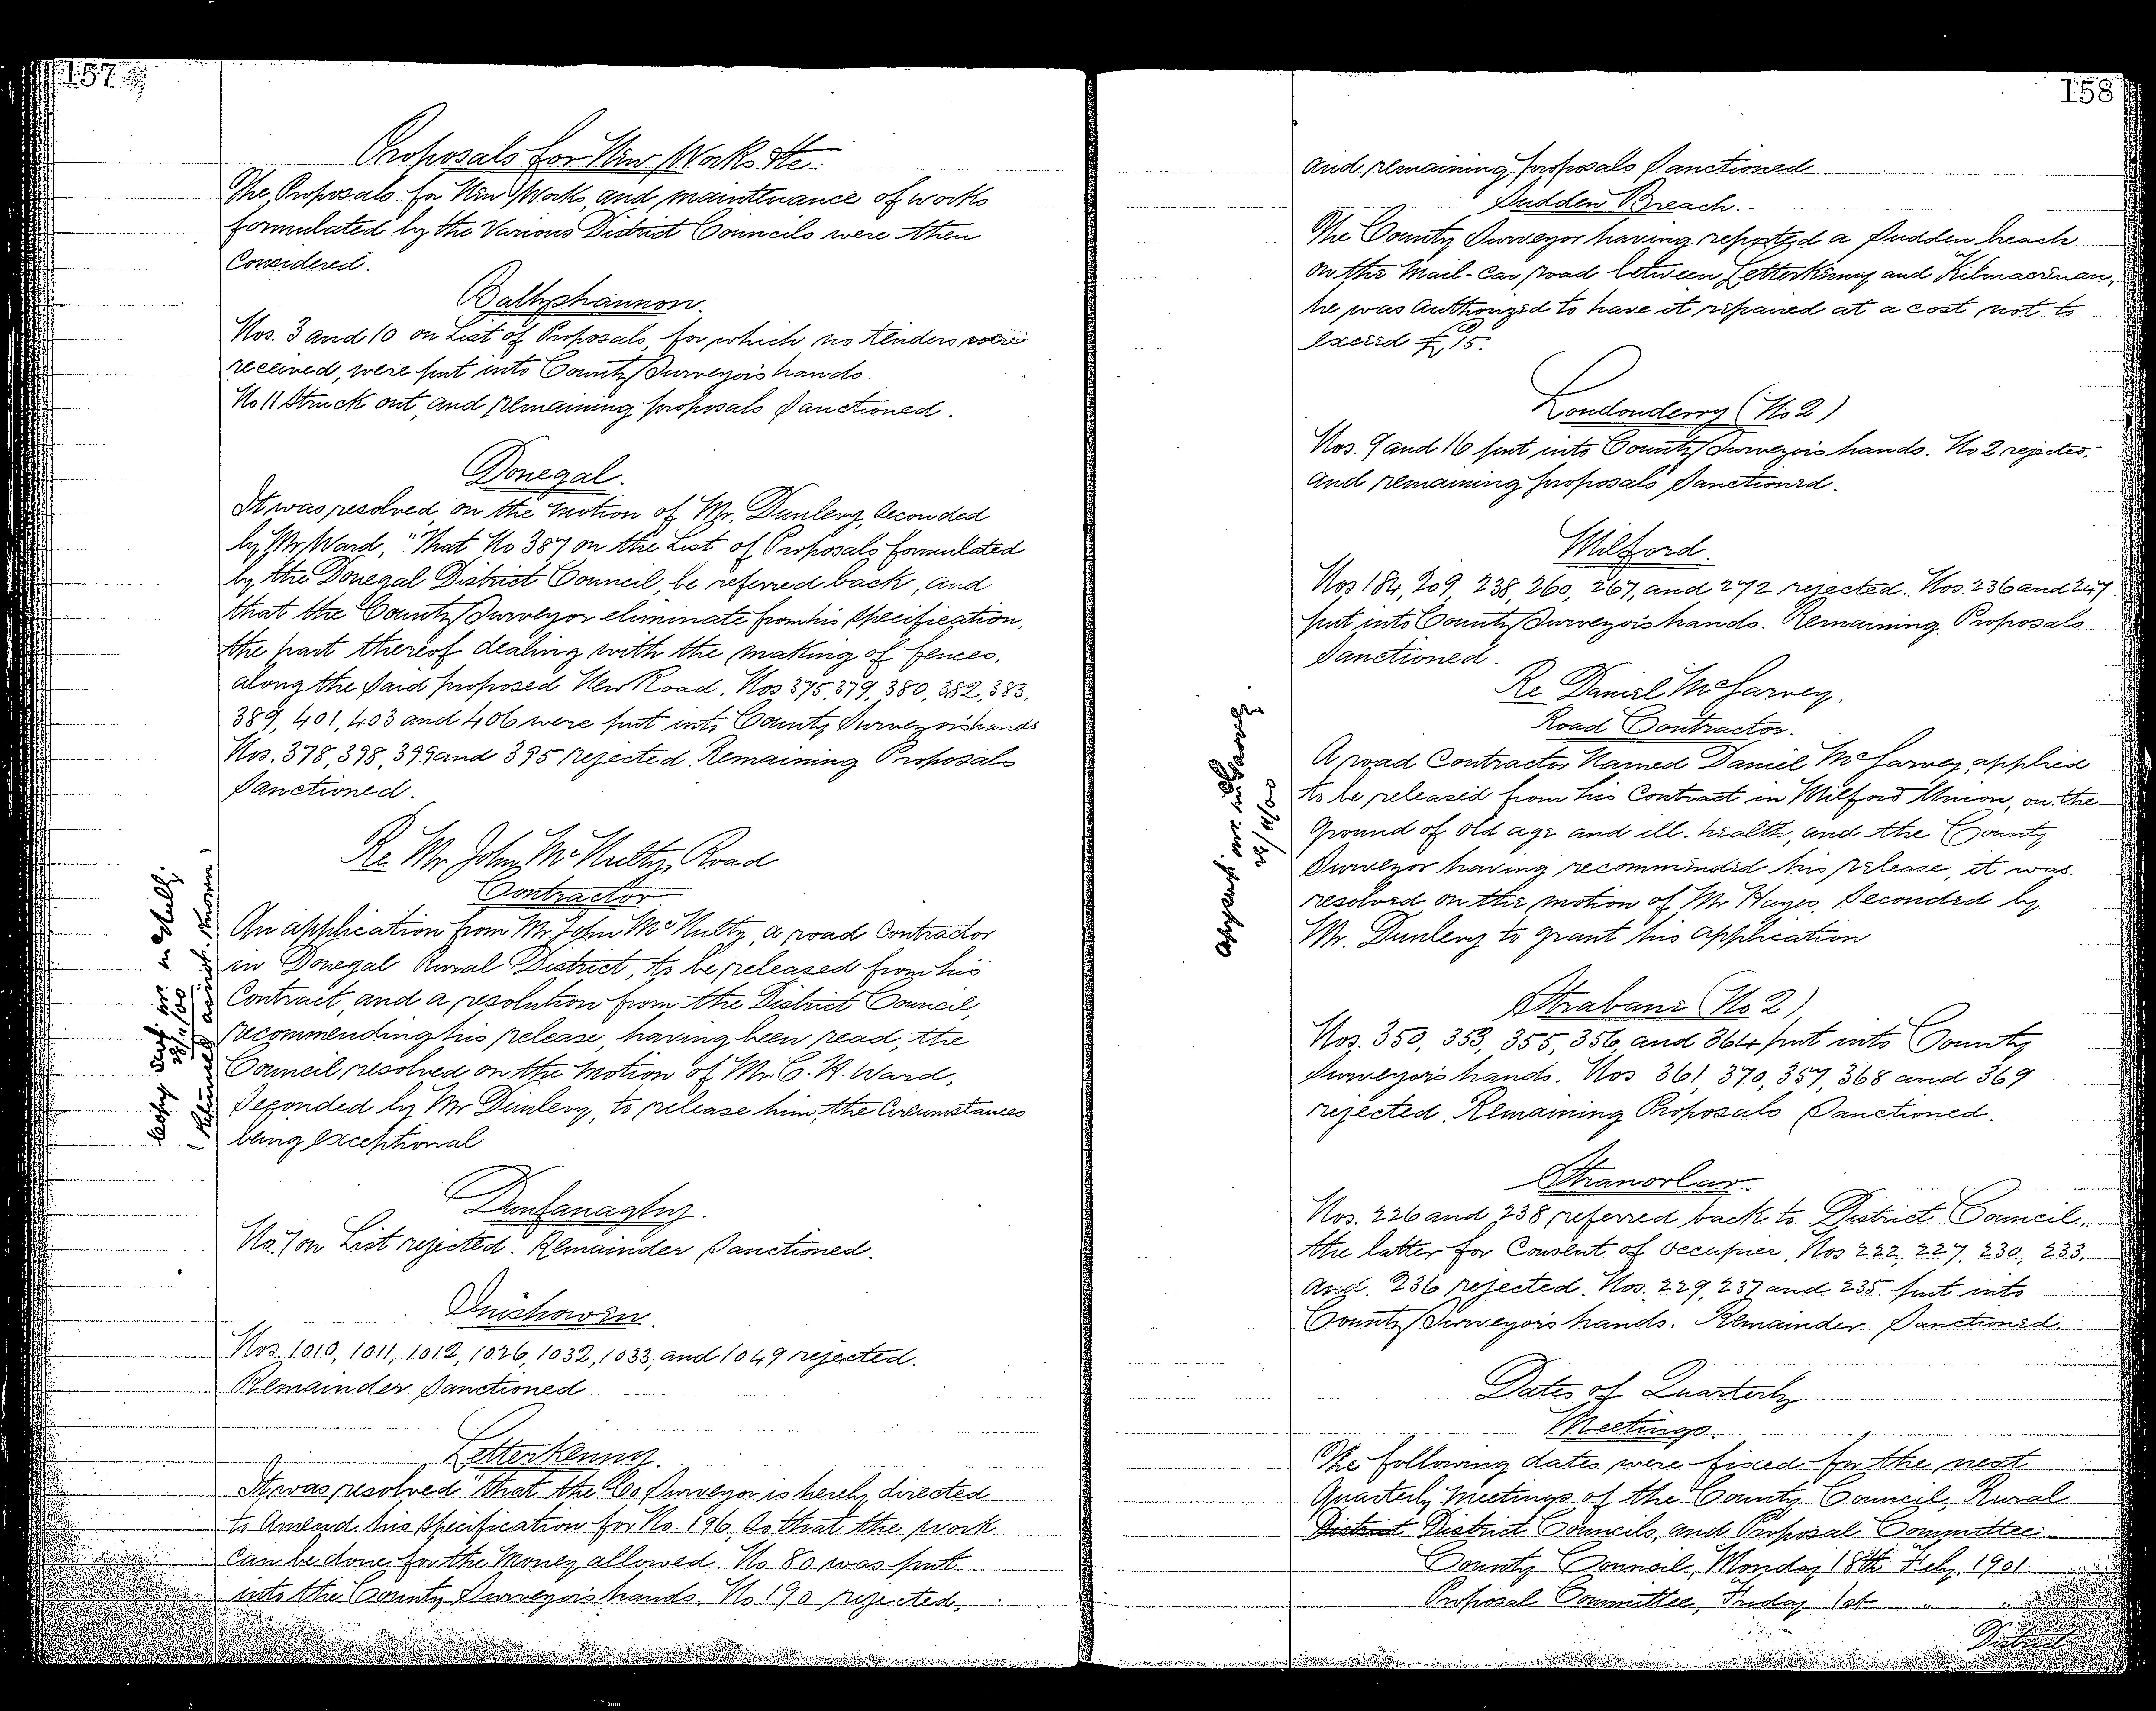 157
Proposals for New Works &c.
The Proposals for New Works, and maintenance of works
formulated by the Various District Councils were then
Considered.
Ballyshannon.
Nos. 3 and 10 on List of Proposals, for which no tenders were
received, were put into County Surveyor's hands.
No 11 Struck out, and remaining proposals Sanctioned.
Donegal.
It was resolved on the motion of Mr. Dunlevy, Seconded
by Mr Ward, "That No 387 on the List of Proposals formulated
by the Donegal District Council, be referred back, and
that the County Surveyor eliminate from his Specification,
the part thereof dealing with the making of fences,
along the Said proposed New Road. Nos 375, 379, 380, 382, 383,
389, 401, 403 and 406 were put into County Surveyor's hands
Nos. 378, 398, 399 and 395 rejected. Remaining Proposals
Sanctioned.
Re Mr. John McNulty, Road
Contractor
An application from Mr. John McNulty, a road Contractor
in Donegal Rural District, to be released from his
Contract, and a resolution from the District Council,
recommending his release, having been read, the
Council resolved on the Motion of Mr. C. H. Ward,
Seconded by Mr Dunlevy, to release him, the Circumstances
being exceptional
Copy
28/11/00
Dunfanaghy.
No. 7 on List rejected. Remainder Sanctioned.
Inishowen.
Nos. 1010, 1011, 1012, 1026, 1032, 1033, and 1049 rejected.
Remainder Sanctioned
Letterkenny.
It was resolved "that the Co Surveyor is hereby directed
to Amend his Specification for No. 196, So that the work
Can be done for the Money allowed. No 80 was put
into the County Surveyor's hands. No 190 rejected,
158
and remaining proposals Sanctioned
Sudden Breach.
The County Surveyor having reported a Sudden breach
on the Mail-Car road between Letterkenny and Kilmacrenan,
he was Authorized to have it repaired at a cost not to
exceed £15.
Londonderry (No 2)
Nos. 9 and 16 put into County Surveyor's hands. No 2 rejected,
and remaining proposals Sanctioned.
Milford.
Nos 184, 209, 238, 260, 267, and 272 rejected. Nos. 236 and 247
put into County Surveyor's hands. Remaining Proposals
Sanctioned.
Re Daniel McGarvey,
Road Contractor.
A road Contractor Named Daniel McGarvey, applied
to be released from his Contract in Milford Union, on the
Ground of Old age and ill-health, and the County
Surveyor having recommended his release, it was
resolved on the motion of Mr Hayes, Seconded by
Mr. Dunlevy to grant his application
Strabane (No 2)
Nos. 350, 353, 355, 356, and 364 put into County
Surveyor's hands. Nos 361, 370, 357, 368 and 369
rejected. Remaining Proposals Sanctioned.
Stranorlar.
Nos. 226 and 238 referred back to District Council,
the latter for Consent of Occupier. Nos 222, 227, 230, 233,
And 236 rejected. Nos. 229, 237 and 235 put into
County Surveyor's hands. Remainder Sanctioned.
Dates of Quarterly
Meetings.
The following dates were fixed for the next
Quarterly Meetings of the County Council, Rural
District District Councils, and Proposal Committee:
County Council, Monday 18th Feby. 1901
Proposal Committee, Friday 1st " "
District